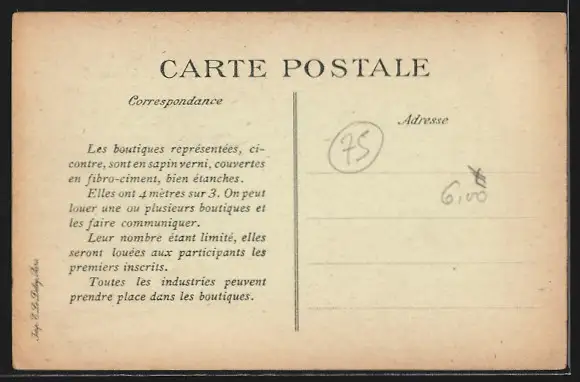 CARTE POSTALE
Correspondance
Adresse
Les boutiques représentées, ci-
contre, sont en sapin verni, couvertes
en fibro-ciment, bien étanches.
Elles ont 4 mètres sur 3. On peut
louer une ou plusieurs boutiques et
les faire communiquer.
Leur nombre étant limité, elles
seront louées aux participants les
premiers inscrits.
Toutes les industries peuvent
prendre place dans les boutiques.
75
6,00